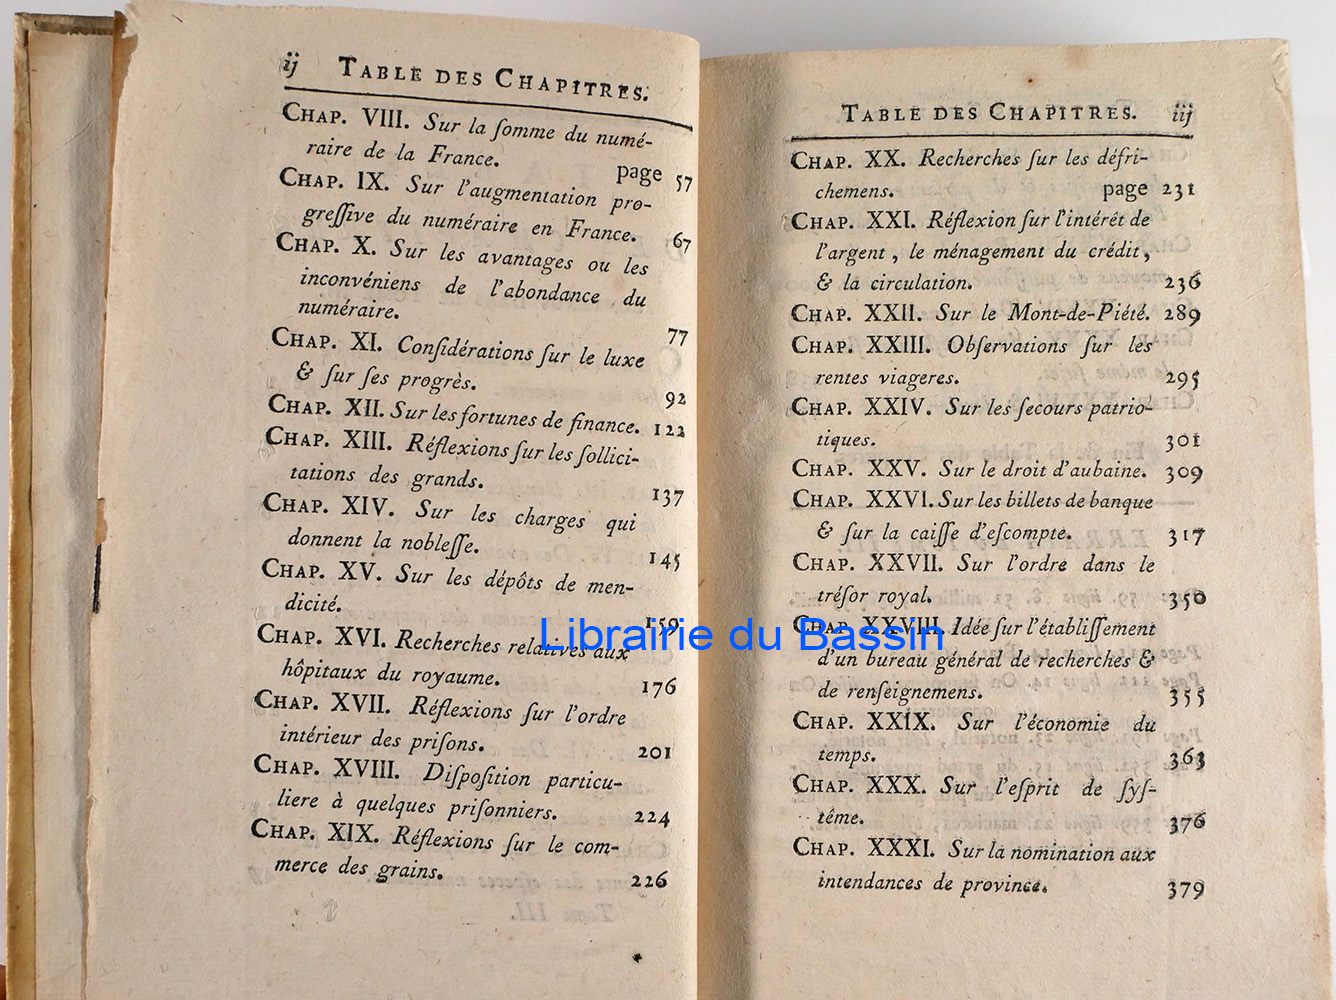 ij TABLE DES CHAPITRES.
CHAP. VIII. Sur la ſomme du numé-
raire de la France. page 57
CHAP. IX. Sur l'augmentation pro-
greſſive du numéraire en France. 67
CHAP. X. Sur les avantages ou les
inconvéniens de l'abondance du
numéraire. 77
CHAP. XI. Conſidérations ſur le luxe
& ſur ſes progrès. 92
CHAP. XII. Sur les fortunes de finance. 122
CHAP. XIII. Réflexions ſur les ſollici-
tations des grands. 137
CHAP. XIV. Sur les charges qui
donnent la nobleſſe. 145
CHAP. XV. Sur les dépôts de men-
dicité. 159
CHAP. XVI. Recherches relatives aux
hôpitaux du royaume. 176
CHAP. XVII. Réflexions ſur l'ordre
intérieur des priſons. 201
CHAP. XVIII. Diſpoſition particu-
liere à quelques priſonniers. 224
CHAP. XIX. Réflexions ſur le com-
merce des grains. 226
*
TABLE DES CHAPITRES. iij
CHAP. XX. Recherches ſur les défri-
chemens. page 231
CHAP. XXI. Réflexion ſur l'intérêt de
l'argent, le ménagement du crédit,
& la circulation. 236
CHAP. XXII. Sur le Mont-de-Piété. 289
CHAP. XXIII. Obſervations ſur les
rentes viageres. 295
CHAP. XXIV. Sur les ſecours patrio-
tiques. 301
CHAP. XXV. Sur le droit d'aubaine. 309
CHAP. XXVI. Sur les billets de banque
& ſur la caiſſe d'eſcompte. 317
CHAP. XXVII. Sur l'ordre dans le
tréſor royal. 350
CHAP. XXVIII. Idée ſur l'établiſſement
d'un bureau général de recherches &
de renſeignemens. 355
CHAP. XXIX. Sur l'économie du
temps. 363
CHAP. XXX. Sur l'eſprit de ſyſ-
tême. 376
CHAP. XXXI. Sur la nomination aux
intendances de province. 379
Librairie du Bassin